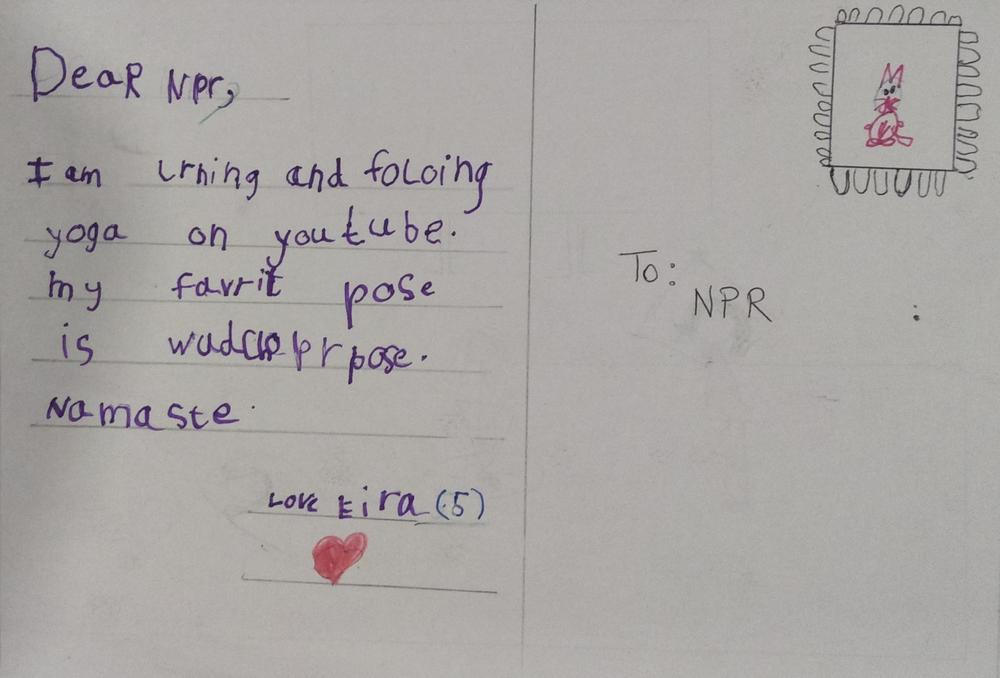 Dear Npr,
I am Lrning and foLoing
yoga on youtube.
my favrit pose
is pose.
Namaste.
Love Eira (5)
To:
NPR